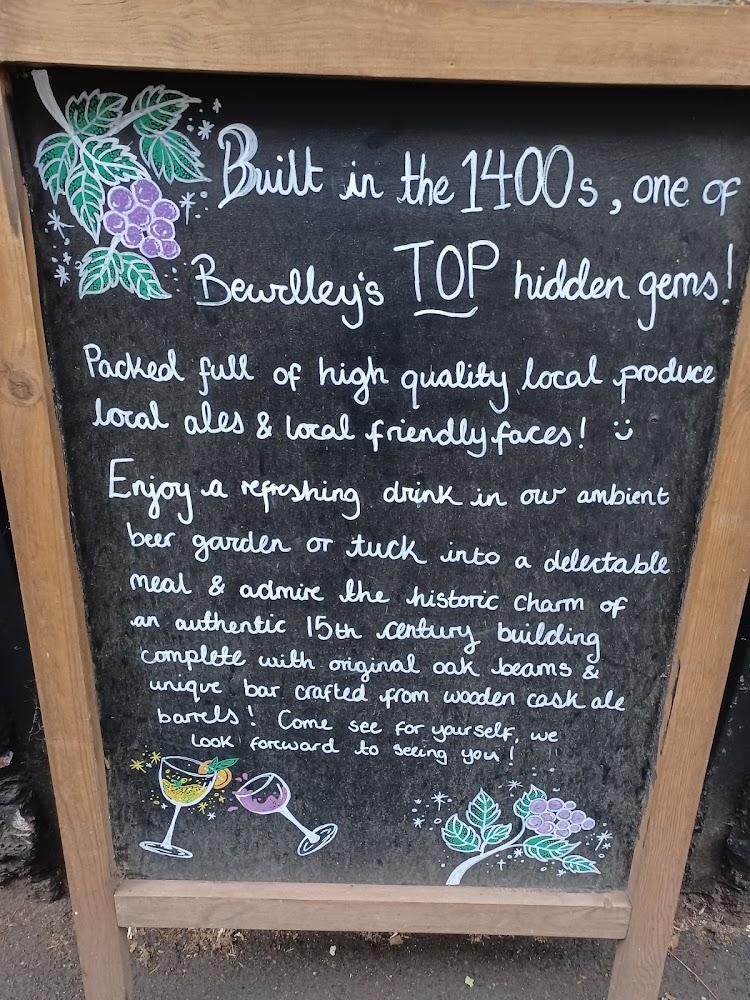 Built in the 1400s, one of
Bewdley's TOP hidden gems!
Packed full of high quality local produce
local ales & local friendly faces! :)
Enjoy a refreshing drink in our ambient
beer garden or tuck into a delectable
meal & admire the historic charm of
an authentic 15th century building
complete with original oak beams &
unique bar crafted from wooden cask ale
barrels! Come see for yourself, we
look forward to seeing you!